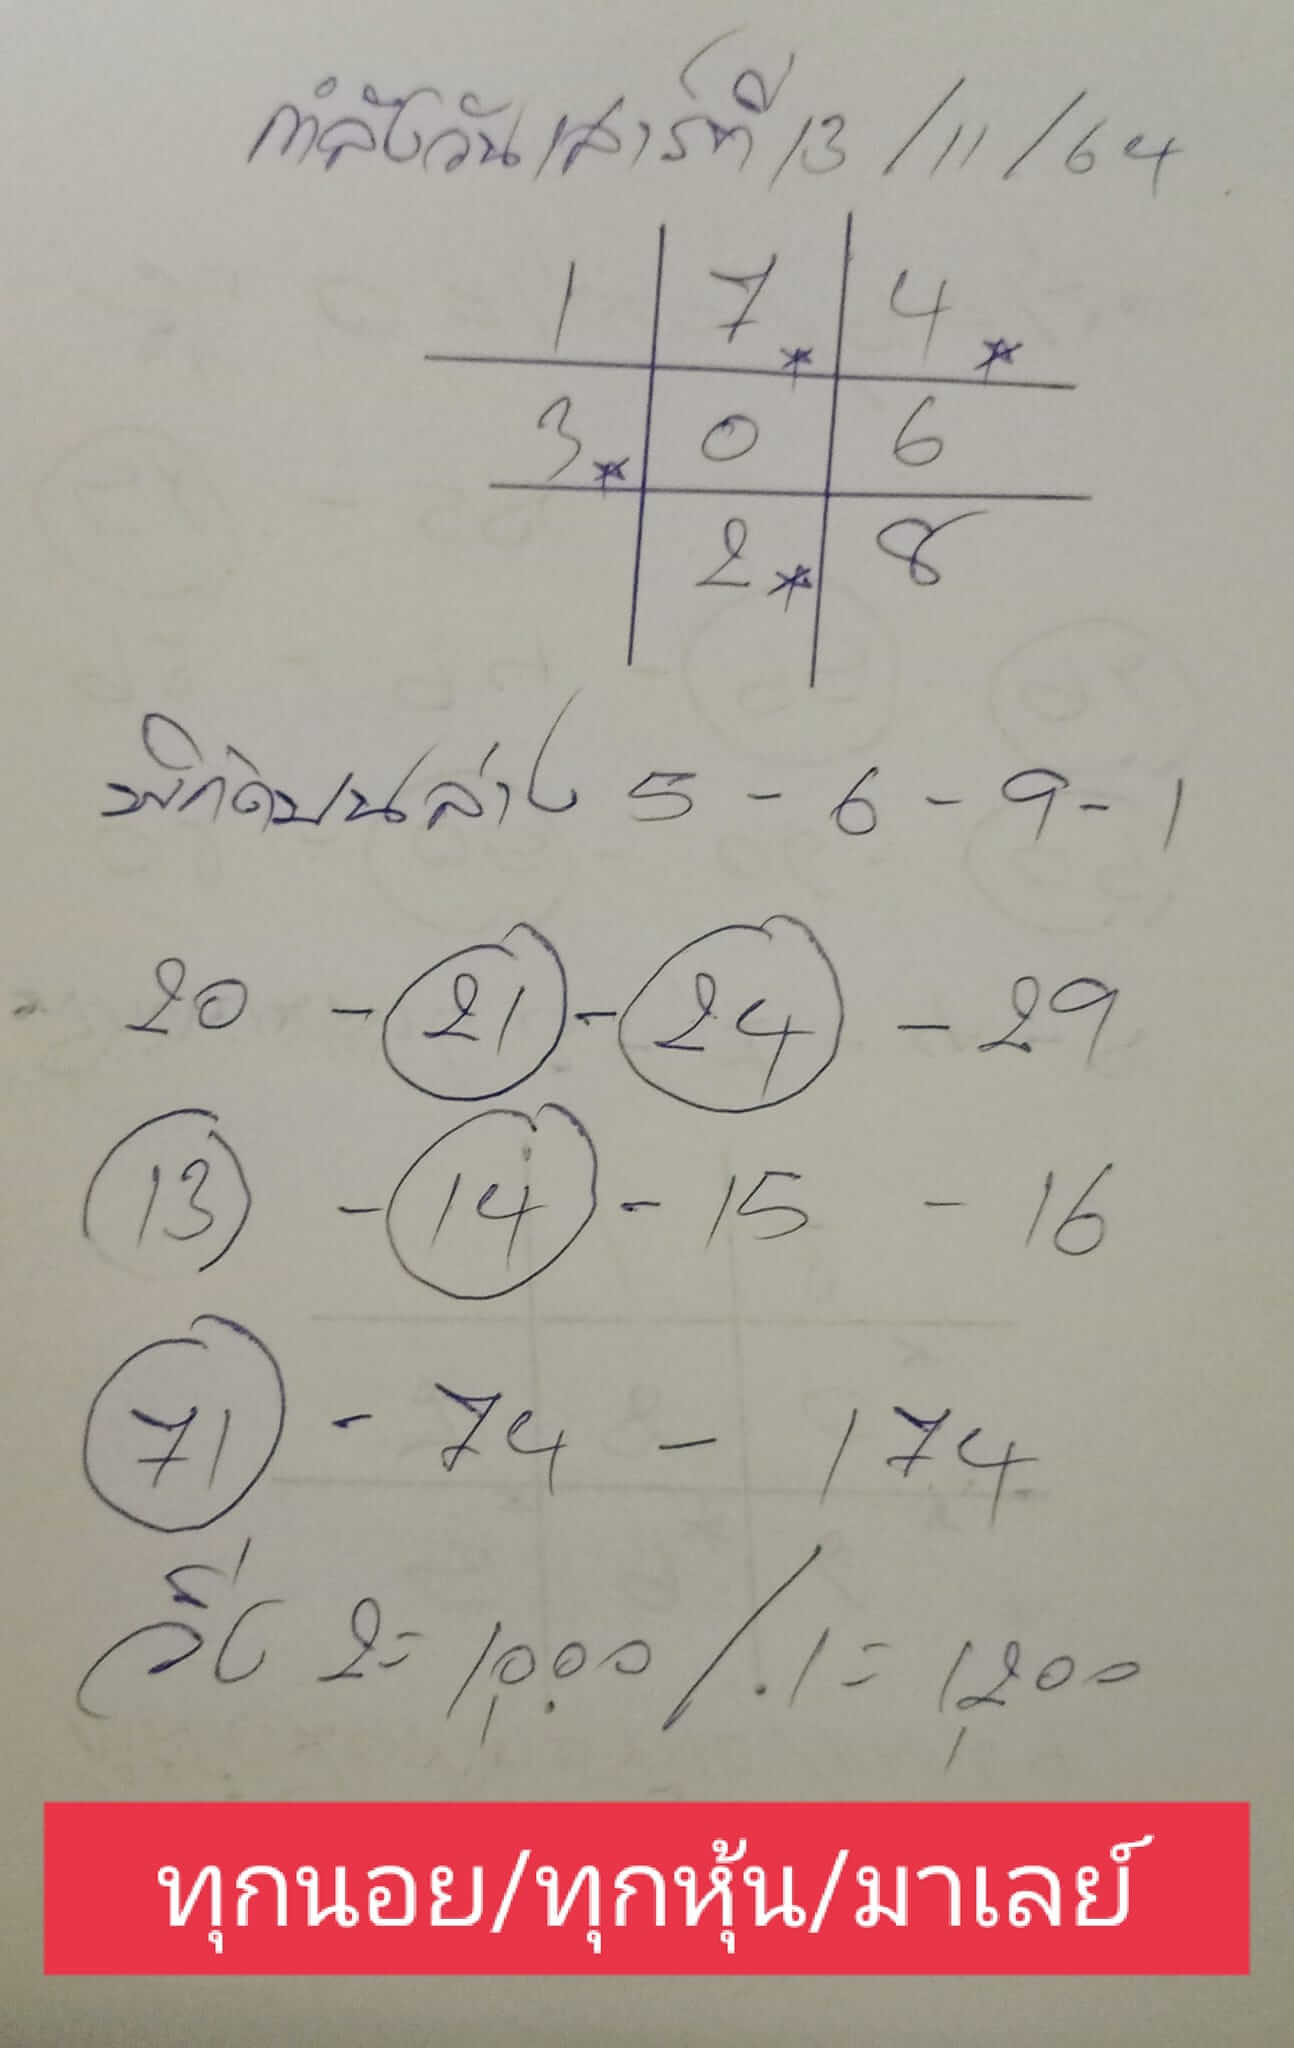 กำลังวันเสาร์ที่ 13/11/64
1 7* 4*
3* 0 6
2* 8
พิกัดบนล่าง 5 - 6 - 9 - 1
20 - 21 - 24 - 29
13 - 14 - 15 - 16
71 - 74 - 174
วิ่ง 2 = 1,000 / . 1 = 1,200
ทุกนอย/ทุกหุ้น/มาเลย์